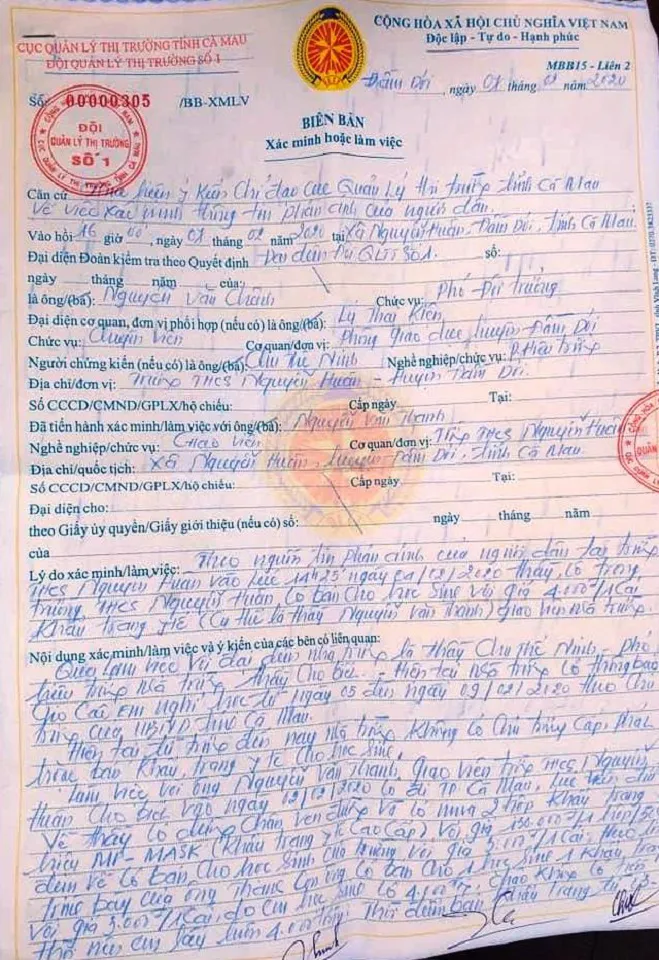 CỤC QUẢN LÝ THỊ TRƯỜNG TỈNH CÀ MAU
ĐỘI QUẢN LÝ THỊ TRƯỜNG SỐ 1
CỘNG HÒA XÃ HỘI CHỦ NGHĨA VIỆT NAM
Độc lập - Tự do - Hạnh phúc
MBB15 - Liên 2
Đầm Dơi, ngày 07 tháng 02 năm 2020
Số: 00000305 /BB-XMLV
ĐỘI
QUẢN LÝ THỊ TRƯỜNG
SỐ 1
BIÊN BẢN
Xác minh hoặc làm việc
Căn cứ Thực hiện ý kiến chỉ đạo Cục Quản Lý thị trường tỉnh Cà Mau
Về việc xác minh thông tin phản ánh của người dân.
Vào hồi 16 giờ 00, ngày 07 tháng 02 năm 2020 tại xã Nguyễn Huân, Đầm Dơi, tỉnh Cà Mau.
Đại diện Đoàn kiểm tra theo Quyết định Đại diện Đội QLTT số 1. số:
ngày tháng năm của:
là ông/(bà): Nguyễn Văn Chính Chức vụ: Phó Đội trưởng
Đại diện cơ quan, đơn vị phối hợp (nếu có) là ông/(bà): Lý Thái Kiên
Chức vụ: Chuyên viên Cơ quan/đơn vị: Phòng giáo dục huyện Đầm Dơi
Người chứng kiến (nếu có) là ông/(bà): Chu Thế Ninh Nghề nghiệp/chức vụ: P. hiệu trưởng
Địa chỉ/đơn vị: Trường THCS Nguyễn Huân - Huyện Đầm Dơi.
Số CCCD/CMND/GPLX/hộ chiếu: Cấp ngày Tại:
Đã tiến hành xác minh/làm việc với ông/(bà): Nguyễn Văn Thanh
Nghề nghiệp/chức vụ: Giáo viên Cơ quan/đơn vị: Trường THCS Nguyễn Huân
Địa chỉ/quốc tịch: xã Nguyễn Huân, huyện Đầm Dơi, tỉnh Cà Mau.
Số CCCD/CMND/GPLX/hộ chiếu: Cấp ngày Tại:
Đại diện cho:
theo Giấy ủy quyền/Giấy giới thiệu (nếu có) số: ngày tháng năm
của
Lý do xác minh/làm việc: Theo nguồn tin phản ánh của người dân tại trường
THCS Nguyễn Huân vào lúc 14h25 ngày 02/2020 thấy, có trong
trường THCS Nguyễn Huân có bán cho học sinh với giá 4.000đ/1 cái
khẩu trang y tế (cụ thể là thầy Nguyễn Văn Thanh) giáo viên nhà trường.
Nội dung xác minh/làm việc và ý kiến của các bên có liên quan:
Qua làm việc với đại diện nhà trường là thầy Chu Thế Ninh - phó
hiệu trưởng nhà trường thầy cho biết. Hiện tại nhà trường có thông báo
cho các em nghỉ học từ ngày 05 đến ngày 09/02/2020 theo chủ
trương của UBND tỉnh Cà Mau.
Hiện tại từ trước đến nay nhà trường không có chủ trương cấp, phát
khẩu trang y tế cho học sinh.
Làm việc với ông Nguyễn Văn Thanh, giáo viên trường THCS Nguyễn
Huân cho biết vào ngày 02/2020 có đi TP. Cà Mau, lúc
về thầy có mua 2 hộp khẩu trang
hiệu MP-MASK (khẩu trang y tế cao cấp) với giá 150.000đ/1 hộp/50
đem về có bán cho học sinh với giá 3.000đ/1 cái,
ông Thanh có bán cho 1 học sinh 1 khẩu trang
với giá 3.000đ/1 cái, do em học sinh có 4.000đ,
4.000đ